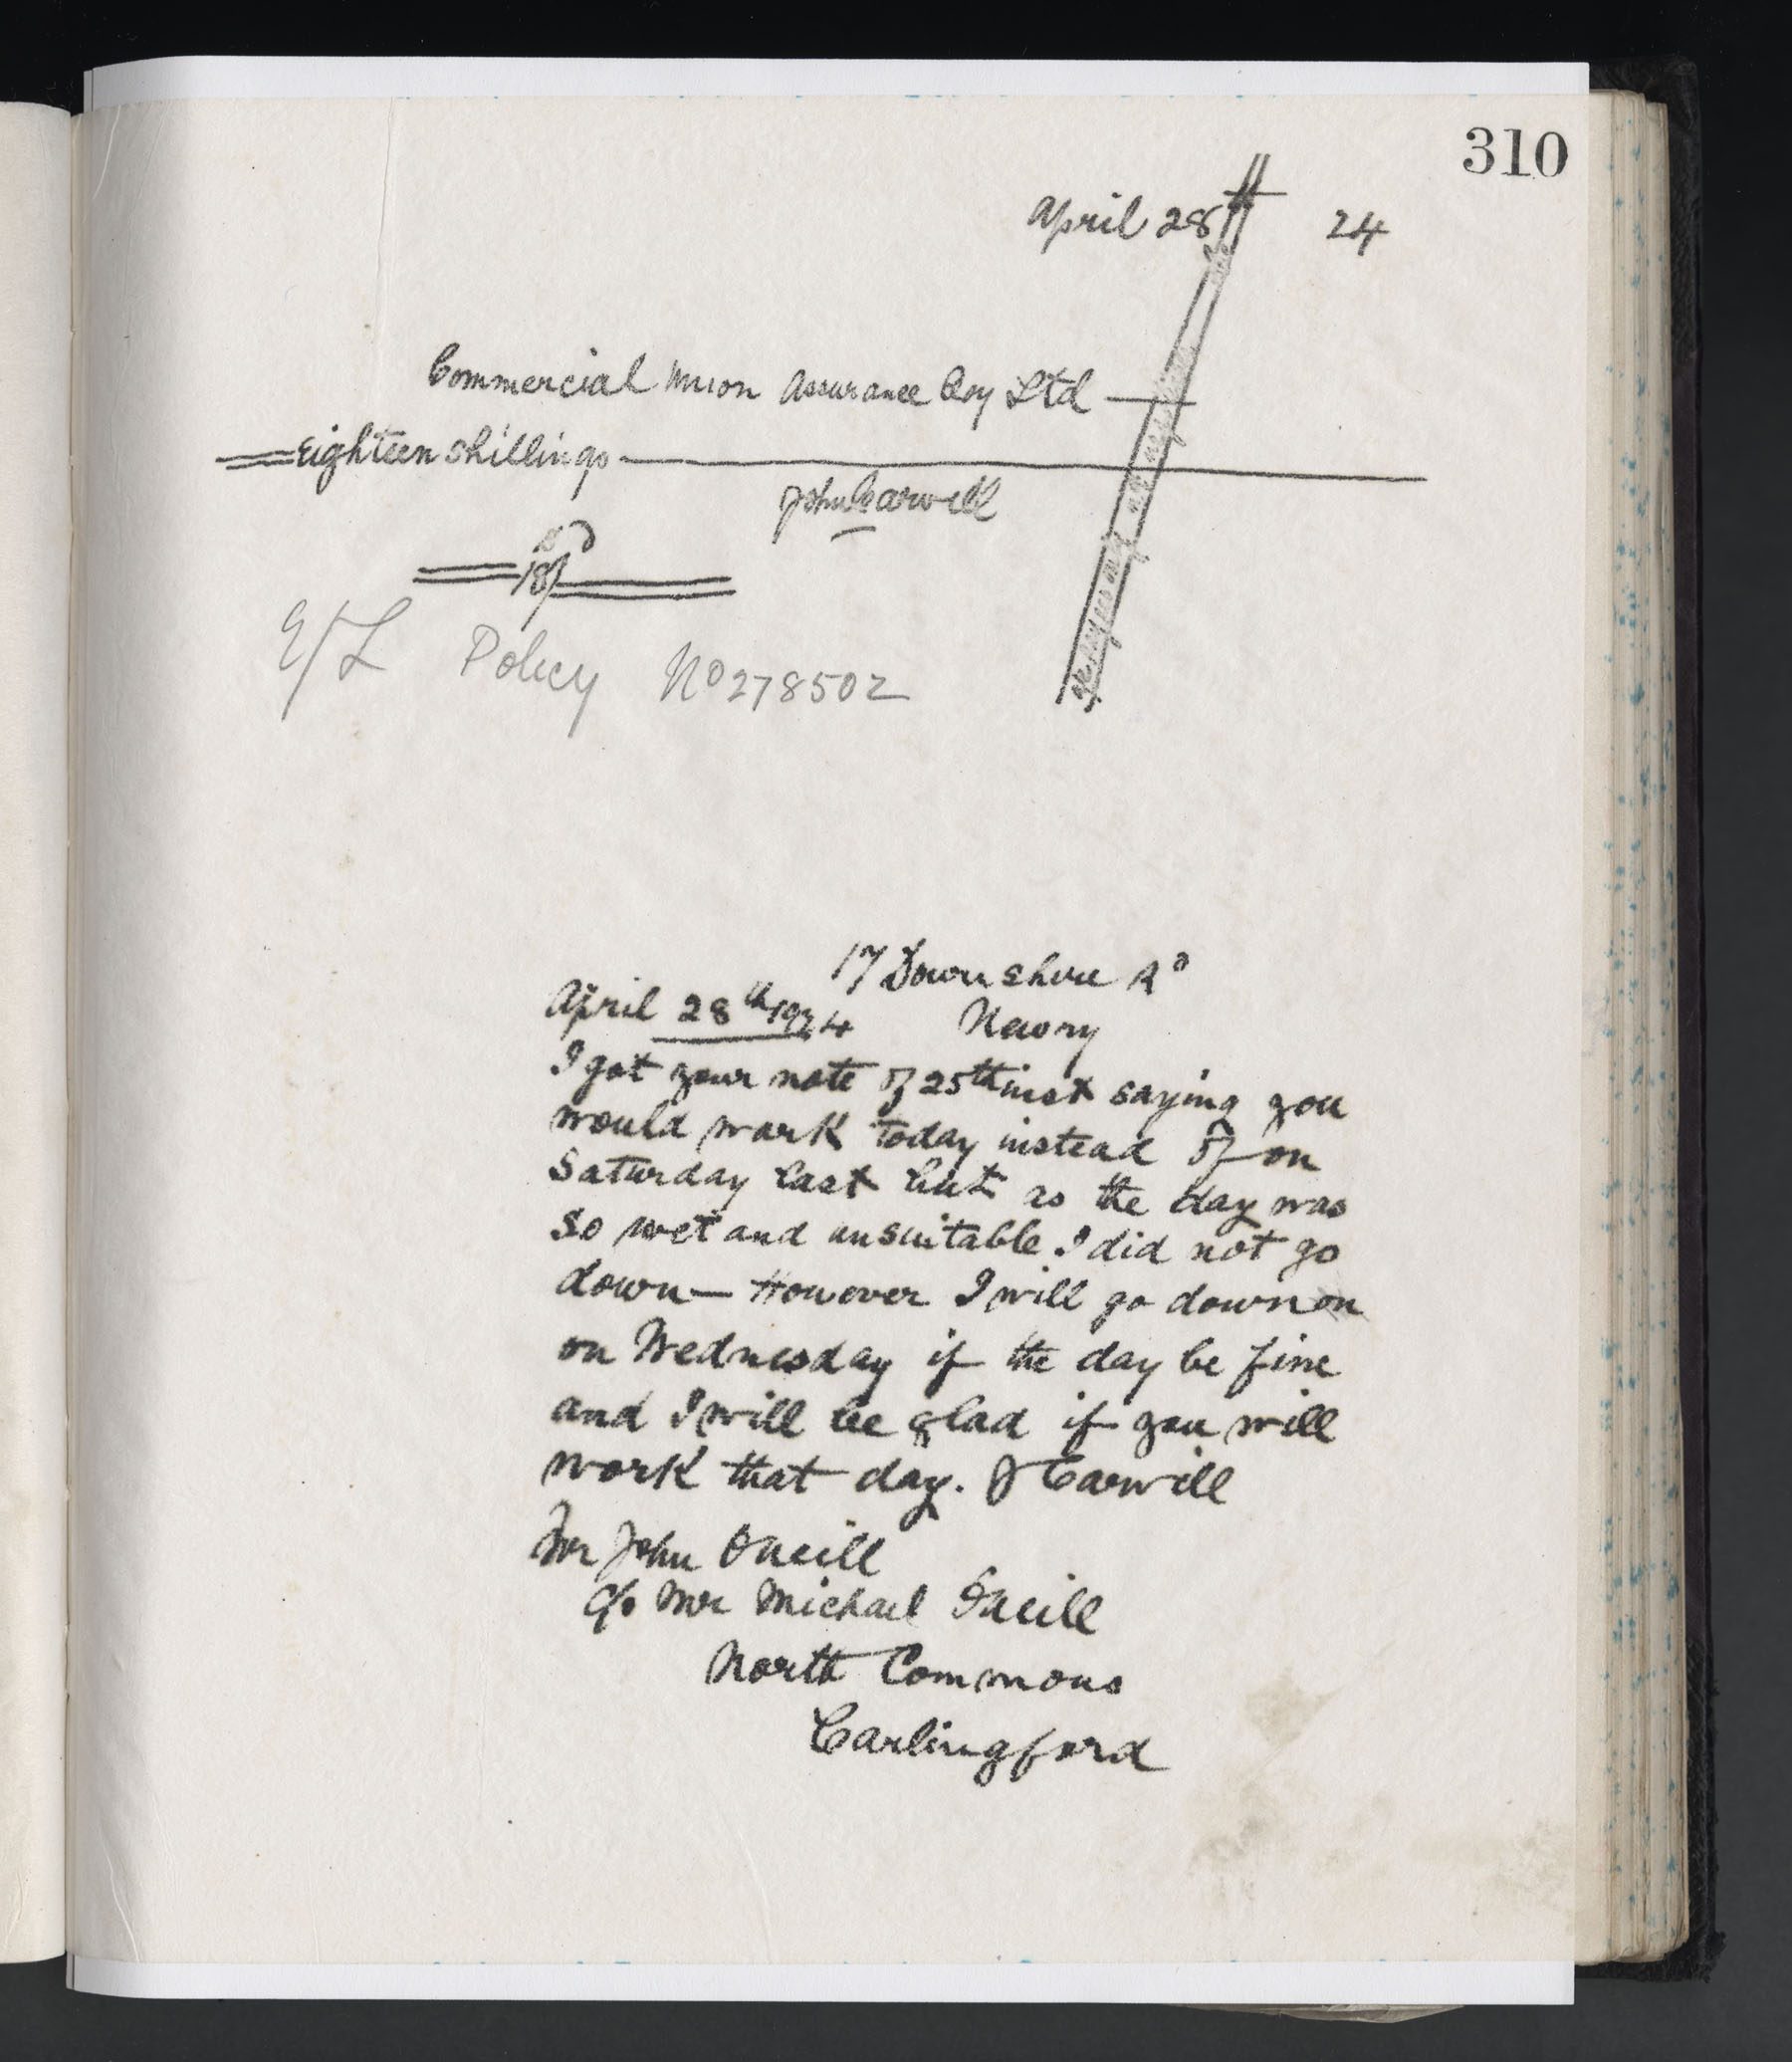 310
April 28th 24
Commercial Union Assurance Coy Ltd
Eighteen shillings
John Carvill
18/
E/L Policy No 278502
17 Downshire Rd
April 28th 1924 Newry
I got your note of 25th inst saying you
would work today instead of on
Saturday last but as the day was
so wet and unsuitable I did not go
down — However I will go down on
on Wednesday if the day be fine
and I will be glad if you will
work that day. J Carvill
Mr John ONeill
c/o Mr Michael ONeill
North Commons
Carlingford